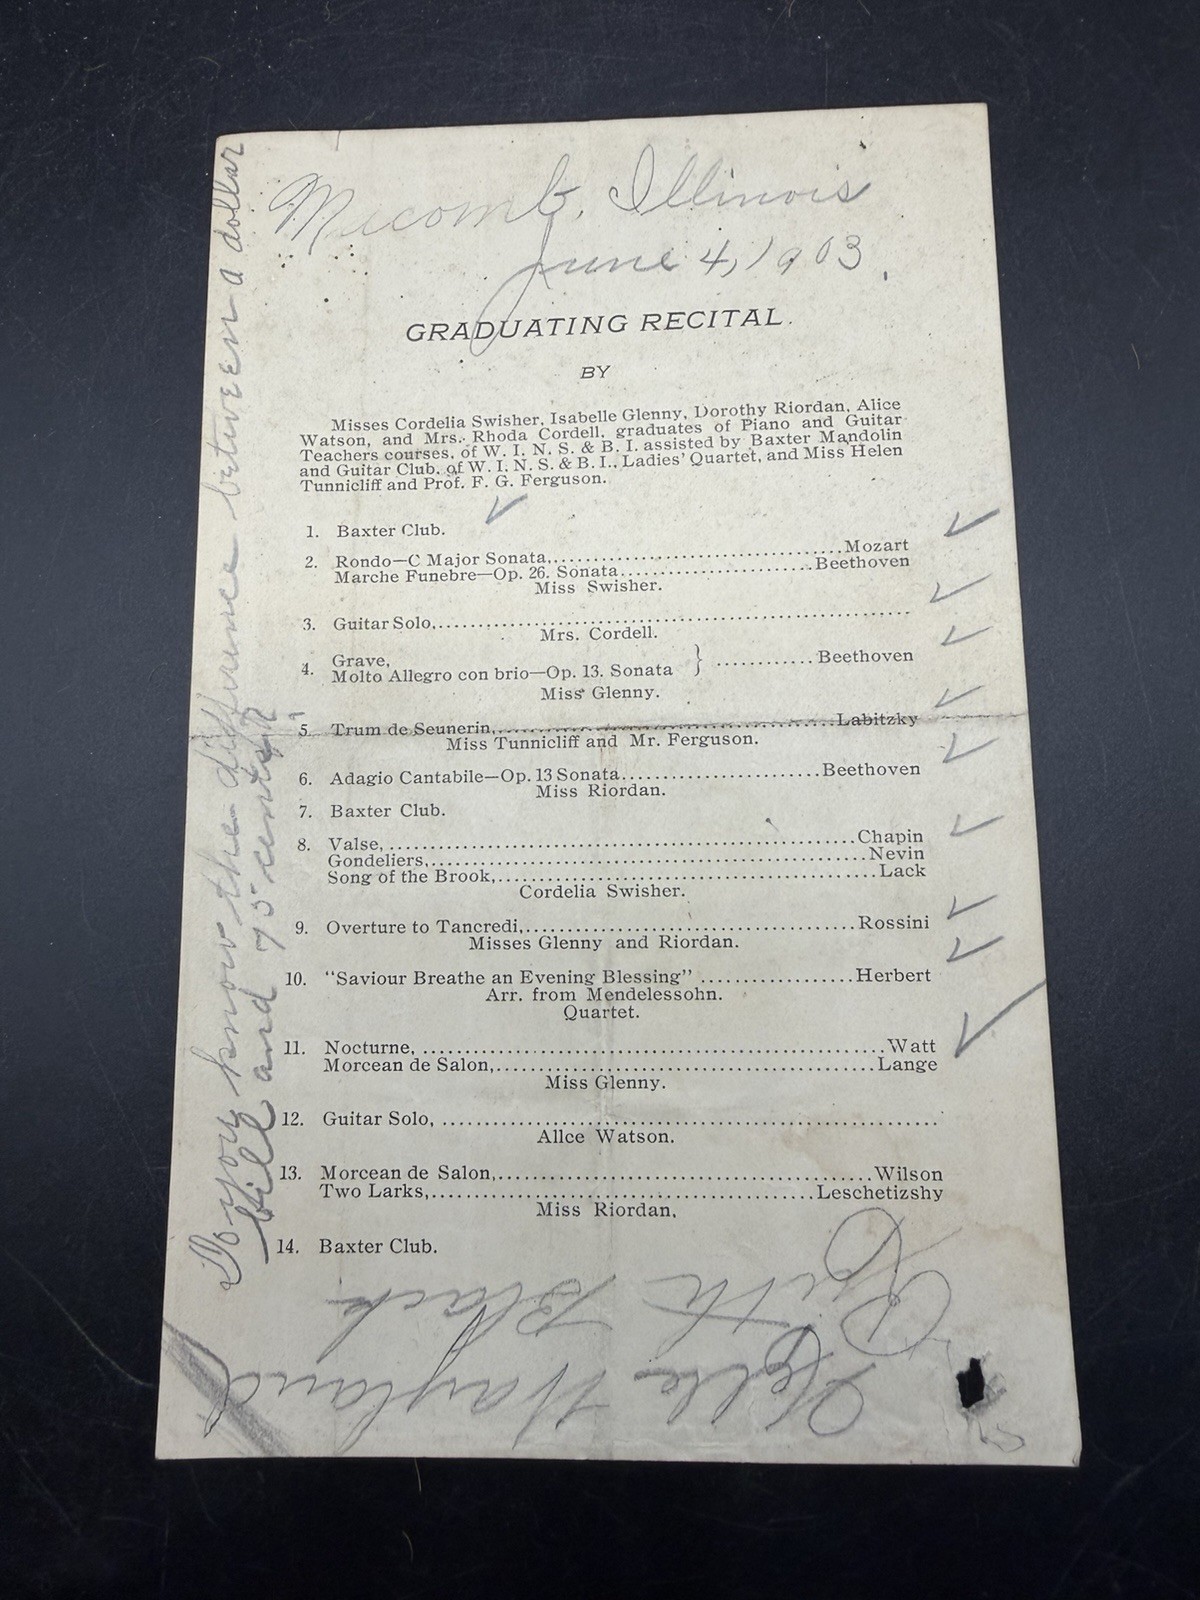 Mecomb, Illinois
June 4, 1903.
GRADUATING RECITAL.
BY
Misses Cordelia Swisher, Isabelle Glenny, Dorothy Riordan, Alice
Watson, and Mrs. Rhoda Cordell, graduates of Piano and Guitar
Teachers courses, of W. I. N. S. & B. I. assisted by Baxter Mandolin
and Guitar Club, of W. I. N. S. & B. I., Ladies' Quartet, and Miss Helen
Tunnicliff and Prof. F. G. Ferguson.
1. Baxter Club.
2. Rondo—C Major Sonata,........................................Mozart
Marche Funebre—Op. 26. Sonata..........................Beethoven
Miss Swisher.
3. Guitar Solo,................................................................
Mrs. Cordell.
4. Grave,
Molto Allegro con brio—Op. 13. Sonata } ............Beethoven
Miss Glenny.
5. Trum de Seunerin,.............................................Labitzky
Miss Tunnicliff and Mr. Ferguson.
6. Adagio Cantabile—Op. 13 Sonata.........................Beethoven
Miss Riordan.
7. Baxter Club.
8. Valse, ...........................................................Chapin
Gondeliers,.......................................................Nevin
Song of the Brook,................................................Lack
Cordelia Swisher.
9. Overture to Tancredi,..........................................Rossini
Misses Glenny and Riordan.
10. "Saviour Breathe an Evening Blessing" ...................Herbert
Arr. from Mendelessohn.
Quartet.
11. Nocturne, .........................................................Watt
Morcean de Salon,................................................Lange
Miss Glenny.
12. Guitar Solo, ...............................................................
Allce Watson.
13. Morcean de Salon,................................................Wilson
Two Larks,..................................................Leschetizshy
Miss Riordan.
14. Baxter Club.
Do you know the difference between a dollar
bill and 75 cents?
Wayland
Ruth Black